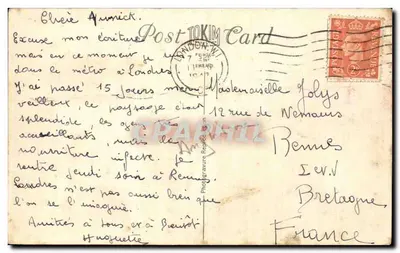 Chère Annick.
Post Card
Excuse mon écriture
mais en ce moment je
dans le métro à Londres
J'ai passé 15 jours
veilleux, le paysage était
splendide les gens très
accueillants, mais la
nourriture infecte. Je
rentre jeudi soir à Rennes
Londres n'est pas aussi bien que
on se l'imagine.
Amitiés à tous et à Bientôt
Huguette
LONDON.W.1
Mademoiselle Jolys
12 rue de Nemours
Rennes
I et V
Bretagne
France